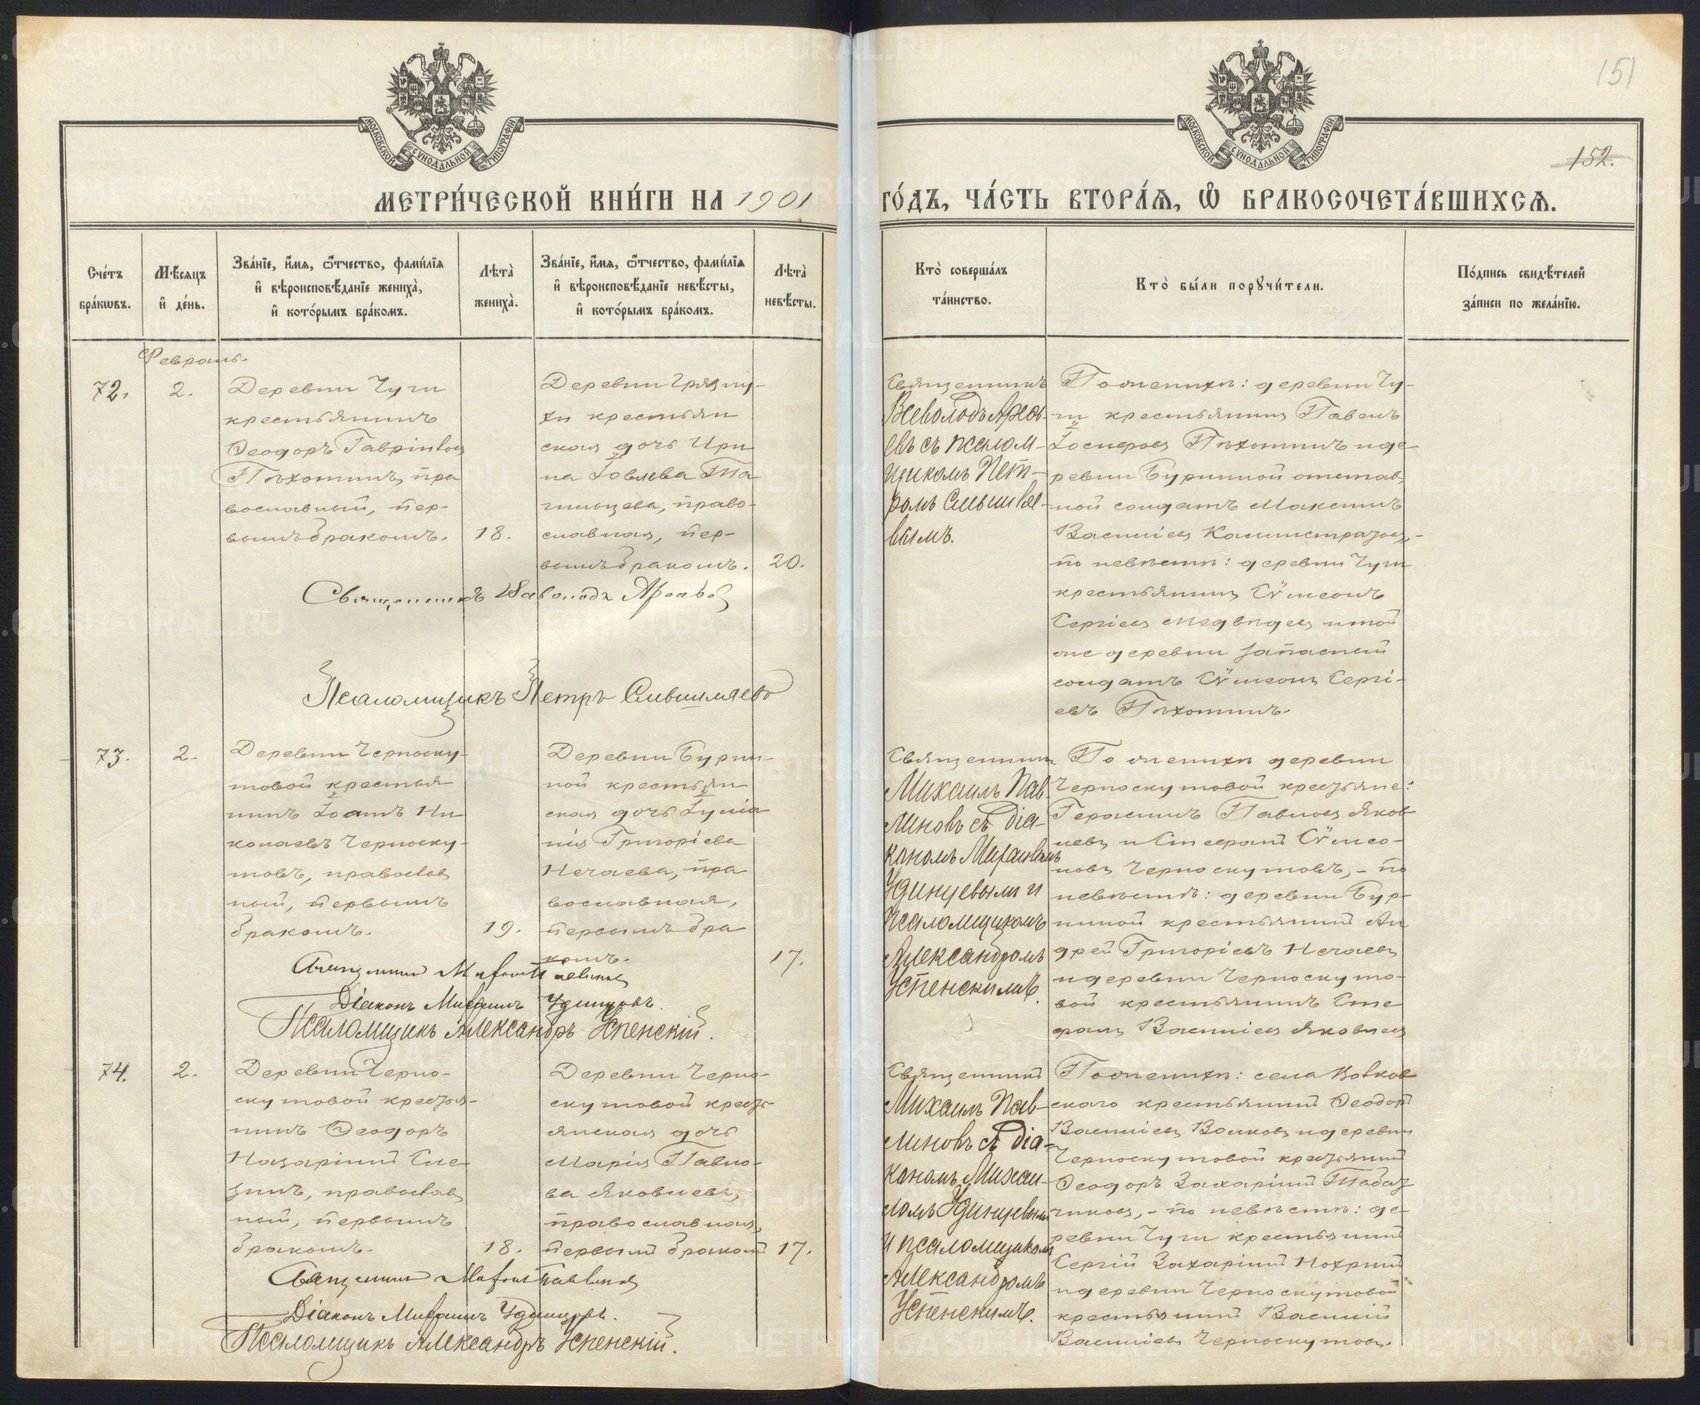 151
152.
МЕТРИ́ЧЕСКОЙ КНИ́ГИ НА 1901 ГО́ДЪ, ЧА́СТЬ ВТОРА́Я, Ѽ БРАКОСОЧЕТА́ВШИХСЯ.
Сче́тъ бра́кωвъ.
Мѣ́сяцъ и҆ де́нь.
Зва́нїе, и҆́мя, ѻ҆́тчество, фами́лїя и҆ вѣроисповѣ́данїе жениха̀, и҆ кото́рымъ бра́комъ.
Лѣта̀ жениха̀.
Зва́нїе, и҆́мя, ѻ҆́тчество, фами́лїя и҆ вѣроисповѣ́данїе невѣ́сты, и҆ кото́рымъ бра́комъ.
Лѣта̀ невѣ́сты.
Кто̀ соверша́лъ та́инство.
Кто̀ бы́ли порꙋчи́тели.
По́дпись свидѣ́телей за́писи по жела́нїю.
Февраль.
72.
2.
Деревни Чуги
крестьянинъ
Ѳеодоръ Гавріиловъ
Пѣхотинъ, пра
вославный, пер-
вымъ бракомъ.
18.
Деревни Грязну-
хи крестьян
ская дочь Ири
на Іовлева Та
гильцева, право-
славная, пер-
вымъ бракомъ.
20.
Священникъ
Всеволодъ Арефь-
евъ съ псалом-
щикомъ Пет-
ромъ
вымъ.
По женихѣ: деревни Чу-
ги крестьянинъ Павелъ
Пѣхотинъ и де-
ревни Буриной отстав
ной солдатъ Максимъ
Василіевъ Калистратовъ,-
по невѣстѣ: деревни Чуги
крестьянинъ Сѵмеонъ
Сергіевъ Медвѣдевъ и той
же деревни запасный
солдатъ Сѵмеонъ Сергі-
евъ Пѣхотинъ.
Священникъ Всеволодъ
Псаломщикъ Петръ
73.
2.
Деревни Черноску-
товой крестья
нинъ Іоаннъ Ни-
колаевъ Черноску-
товъ, православ
ный, первымъ
бракомъ.
19.
Деревни Бури-
ной крестьян
ская дочь Іуліа
нія Григоріева
Нечаева, пра
вославная,
первымъ бра
комъ.
17.
Священникъ
Михаилъ Пав-
линовъ съ діа-
кономъ Михаиломъ
Удинцевымъ и
псаломщикомъ
Александромъ
Успенскимъ.
По женихѣ деревни
Черноскутовой крестьяне:
Герасимъ Павловъ Яков
левъ и Сѵмео-
новъ Черноскутовъ, - по
невѣстѣ: деревни Бур-
иной крестьянинъ Ан
дрей Григоріевъ Нечаевъ
и деревни Черноскуто-
вой крестьянинъ Сте
фанъ Василіевъ Яковлевъ
Священникъ Михаилъ Павлиновъ
Діаконъ Михаилъ Удинцовъ.
Псаломщикъ Александръ Успенскій.
74.
2.
Деревни Черно-
скутовой крестья-
нинъ Ѳеодоръ
Назаріинъ Сме-
танинъ, православ
ный, первымъ
бракомъ.
18.
Деревни Черно-
скутовой кресть-
янская дочь
Марія Павло-
ва Яковлева,
православная,
первымъ бракомъ
17.
Священникъ
Михаилъ Пав-
линовъ съ діа-
кономъ Михаи-
ломъ Удинцевымъ
и псаломщикомъ
Александромъ
Успенскимъ.
По женихѣ: села Волков
скаго крестьянинъ Ѳеодоръ
Василіевъ Волковъ и деревни
Черноскутовой крестьянинъ
Ѳеодоръ Захаріинъ Табат
чиковъ, - по невѣстѣ: де-
ревни Чуги крестьянинъ
Сергій Захаріинъ
и деревни Черноскутовой
крестьянинъ Василій
Василіевъ Черноскутовъ.
Священникъ Михаилъ Павлиновъ
Діаконъ Михаилъ Удинцовъ.
Псаломщикъ Александръ Успенскій.